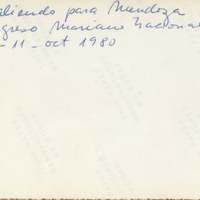 aliendo para Mendoza
greso Mariano Nacional
- 11 - oct 1980